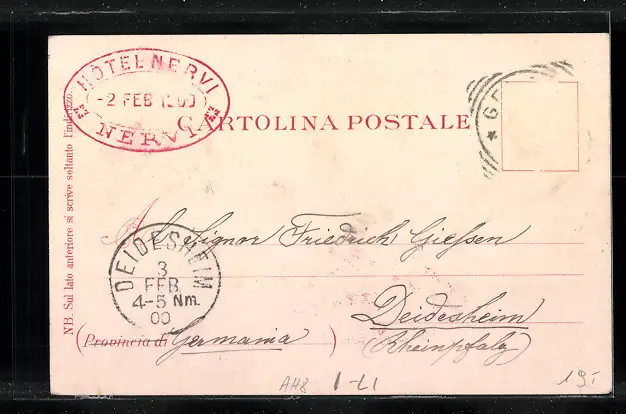 HOTEL NERVI
-2 FEB 1900
NERVI
CARTOLINA POSTALE
* GE
NB. Sul lato anteriore si scrive soltanto l'indirizzo.
A Signor Friedrich Gießen
DEIDESHEIM
3
FEB
4-5 Nm.
00
Deidesheim
(Provincia di Germania)
(Rheinpfalz)
AH8 I-LI
19.-